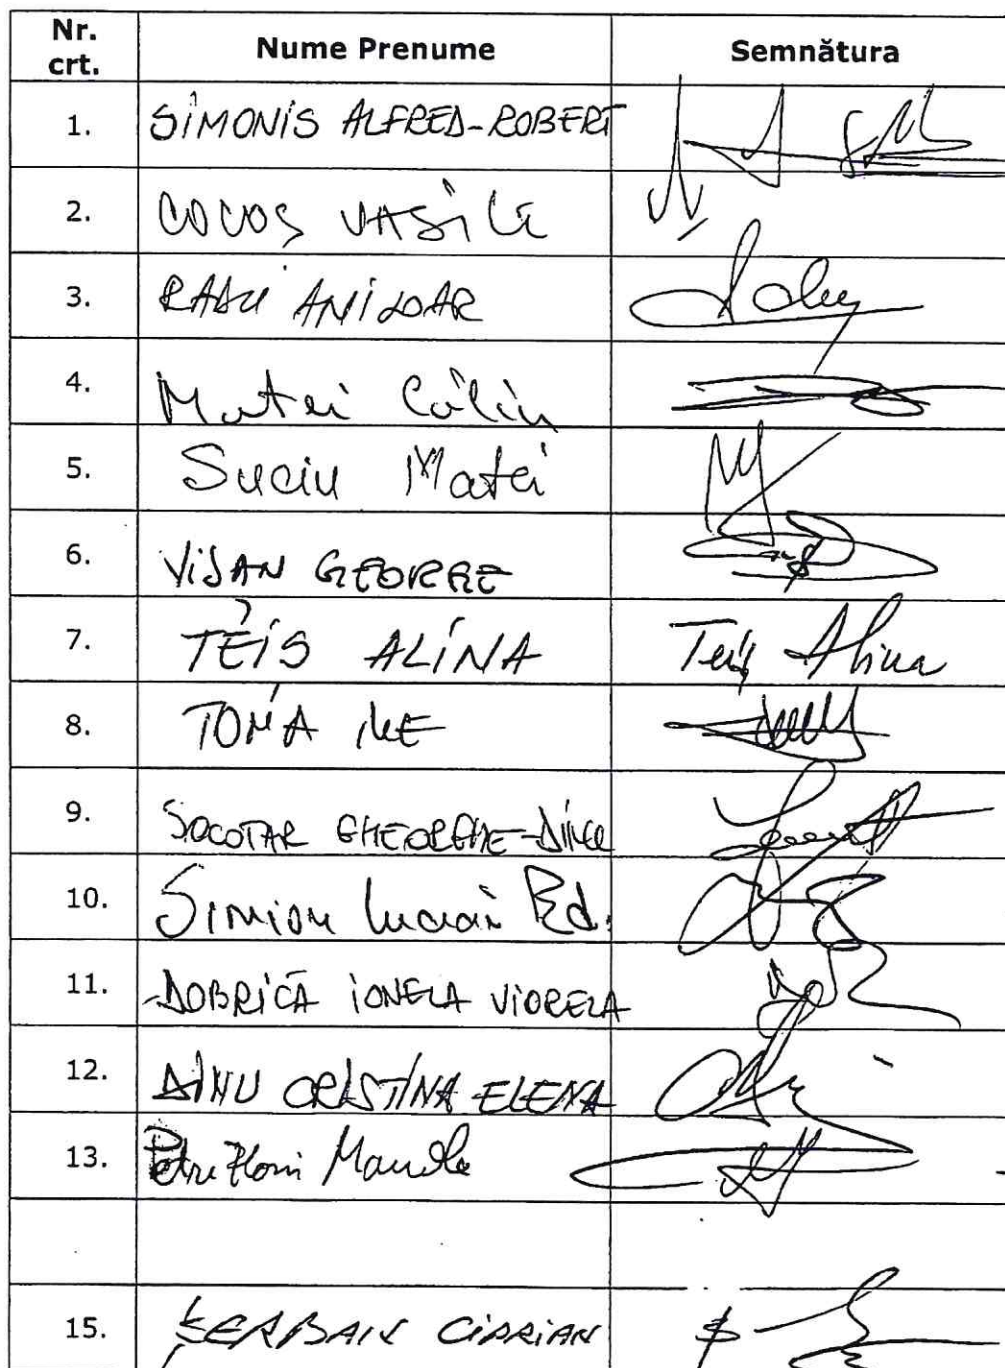 Nr. crt. Nume Prenume Semnătura
1. SIMONIS ALFRED-ROBERT
2. COCOȘ VASILE
3. RADU ANIȘOAR
4. Matei Călin
5. Suciu Matei
6. VIȘAN GEORGE
7. TEIȘ ALINA Teiș Alina
8. TOMA ILIE
9. SOCOTAR GHEORGHE-DINU
10. Simion Lucian Ed.
11. DOBRICĂ IONELA VIORELA
12. DINU CRISTINA-ELENA
13. Petre Florin Manole
15. ȘERBAN CIPRIAN